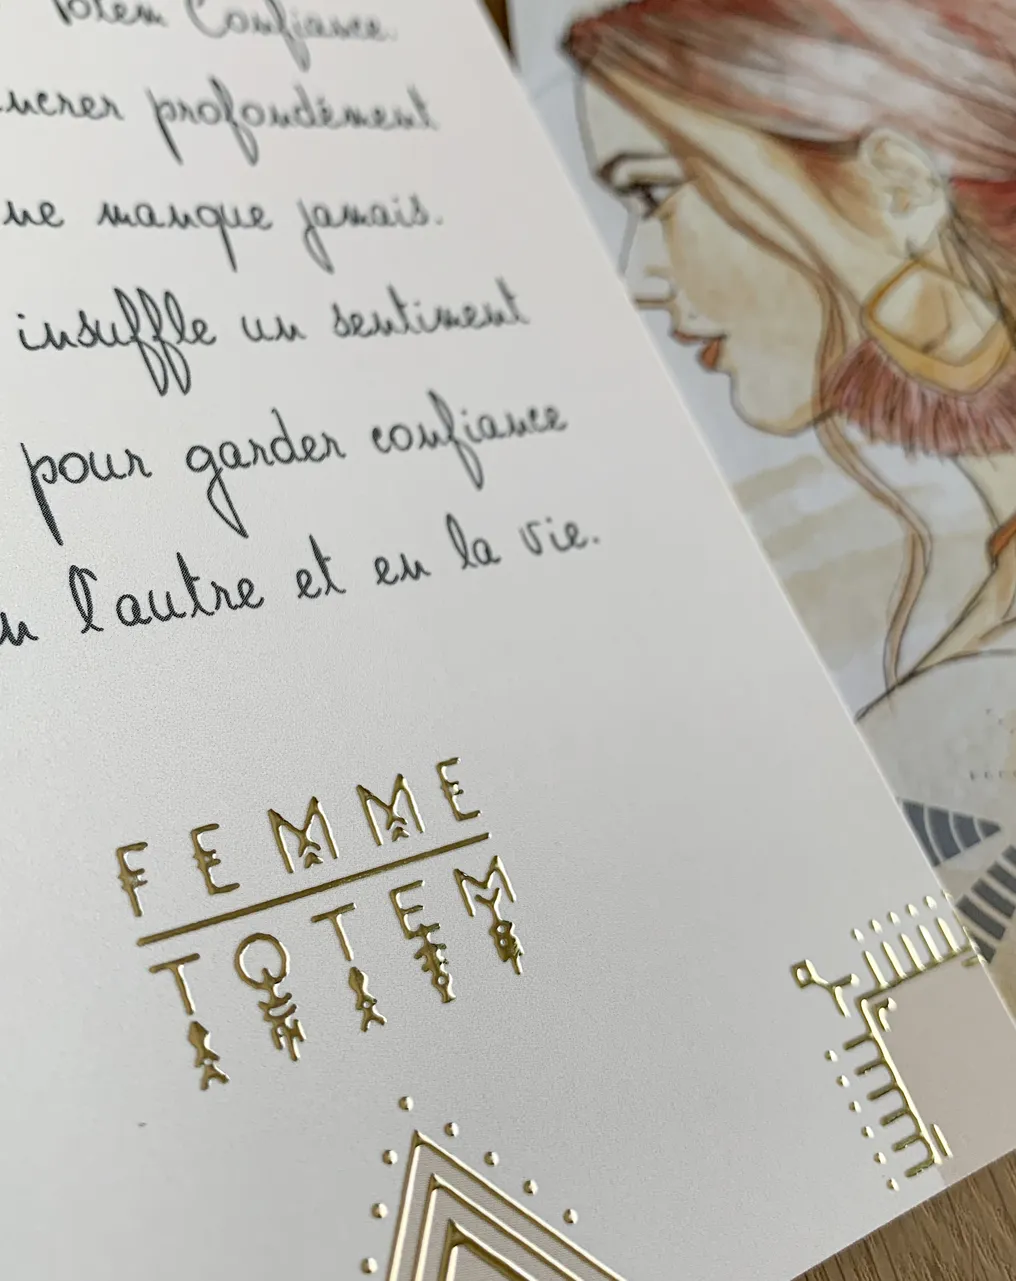 Totem Confiance.
ancrer profondément
ne manque jamais.
insuffle un sentiment
pour garder confiance
en l'autre et en la vie.
FEMME
TOTEM